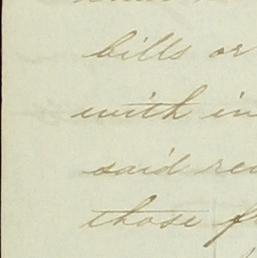 bills or
with in
said re
those f